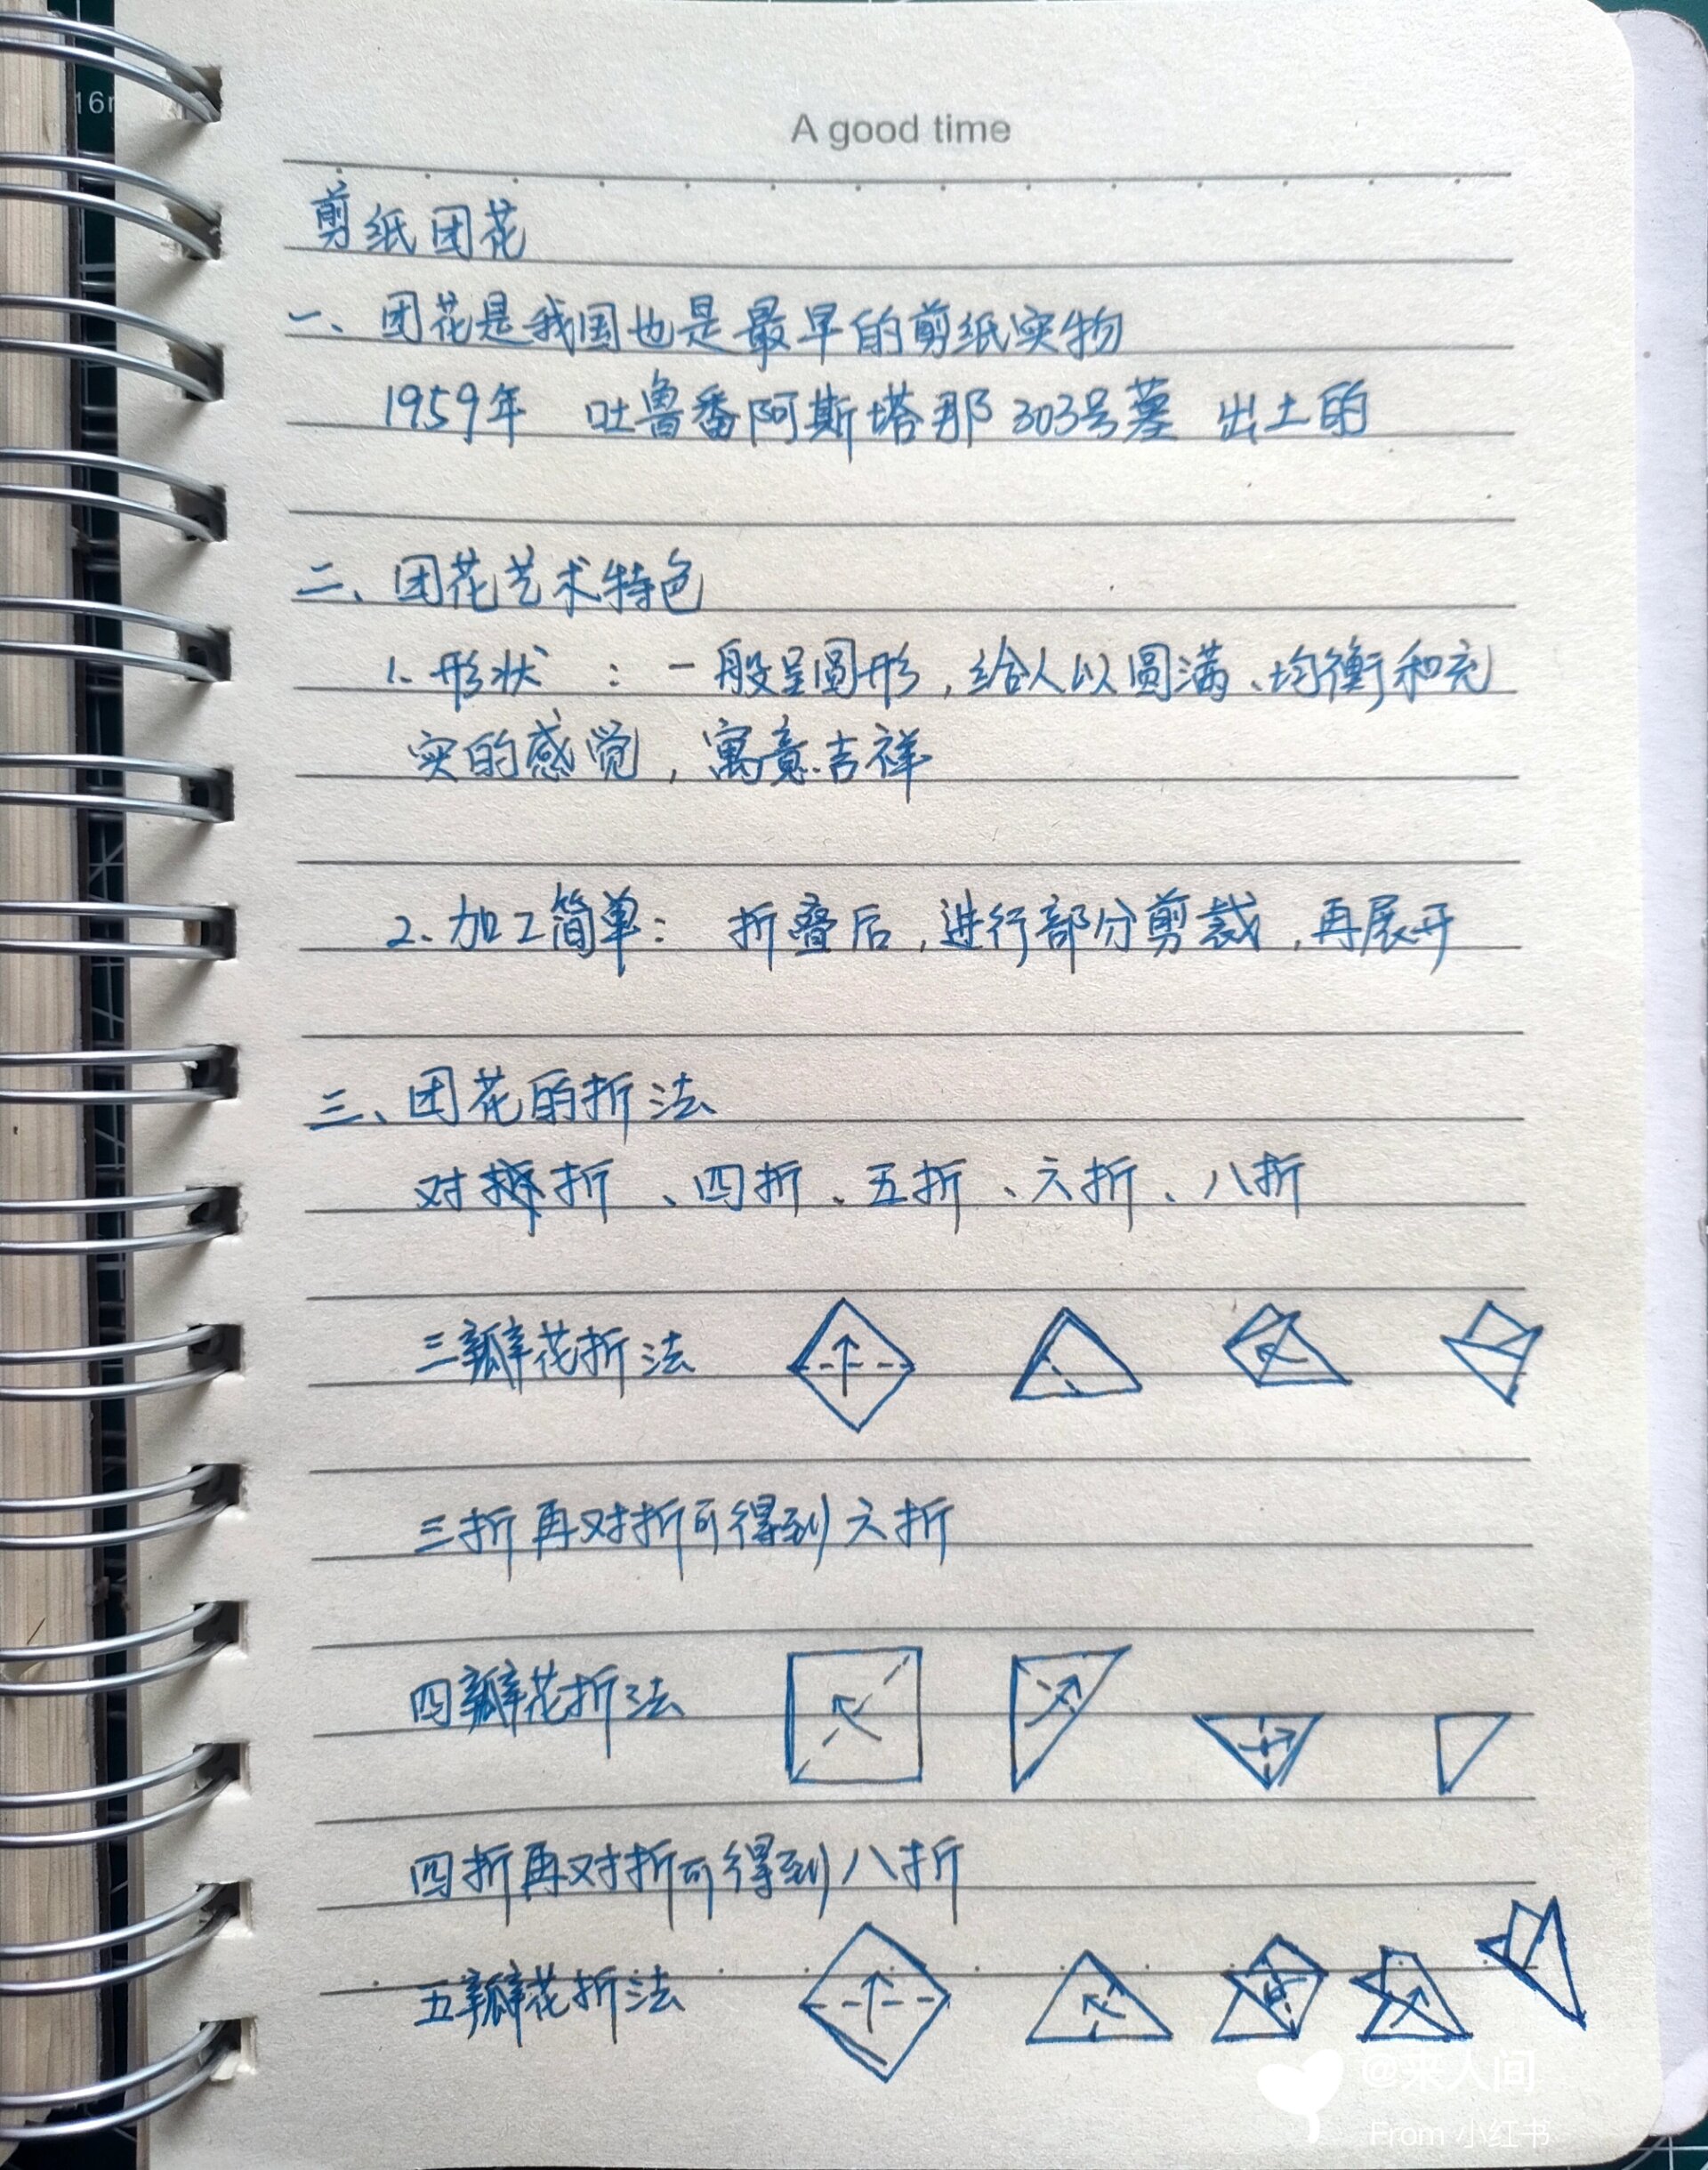 16
A good time
剪纸团花
一、团花是我国也是最早的剪纸实物
1959年 吐鲁番阿斯塔那303号墓 出土的
二、团花艺术特色
1.形状 : 一般呈圆形,给人以圆满、均衡和充
实的感觉,寓意吉祥
2.加工简单: 折叠后,进行部分剪裁,再展开
三、团花的折法
对折、四折、五折、六折、八折
三瓣花折法
三折再对折可得到六折
四瓣花折法
四折再对折可得到八折
五瓣花折法
@来人间
From 小红书